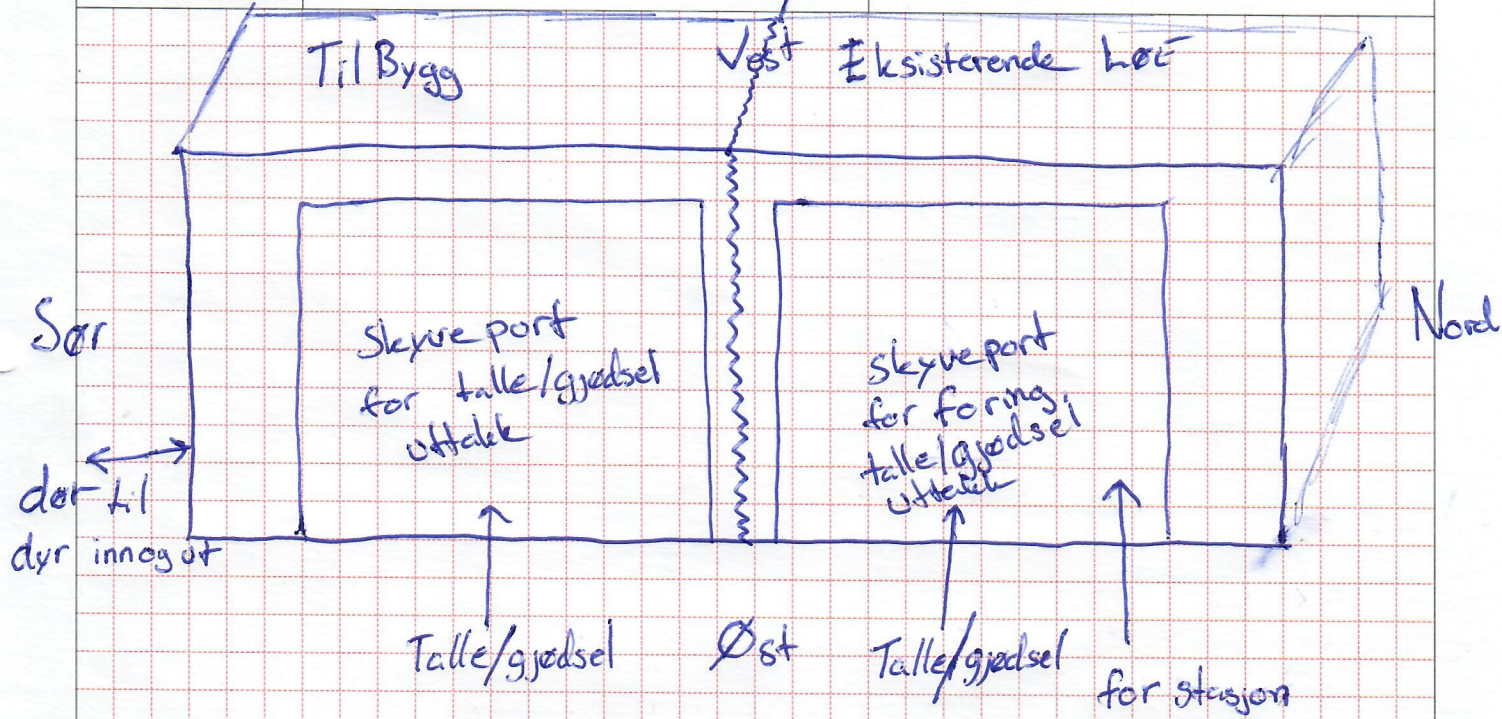 Til Bygg
Vest
Eksisterende LØE
Sør
Nord
skyveport
for talle/gjødsel
uttakk
skyveport
for foring,
talle/gjødsel
uttakk
dør til
dyr innogut
Talle/gjødsel
Øst
Talle/gjødsel
for stasjon